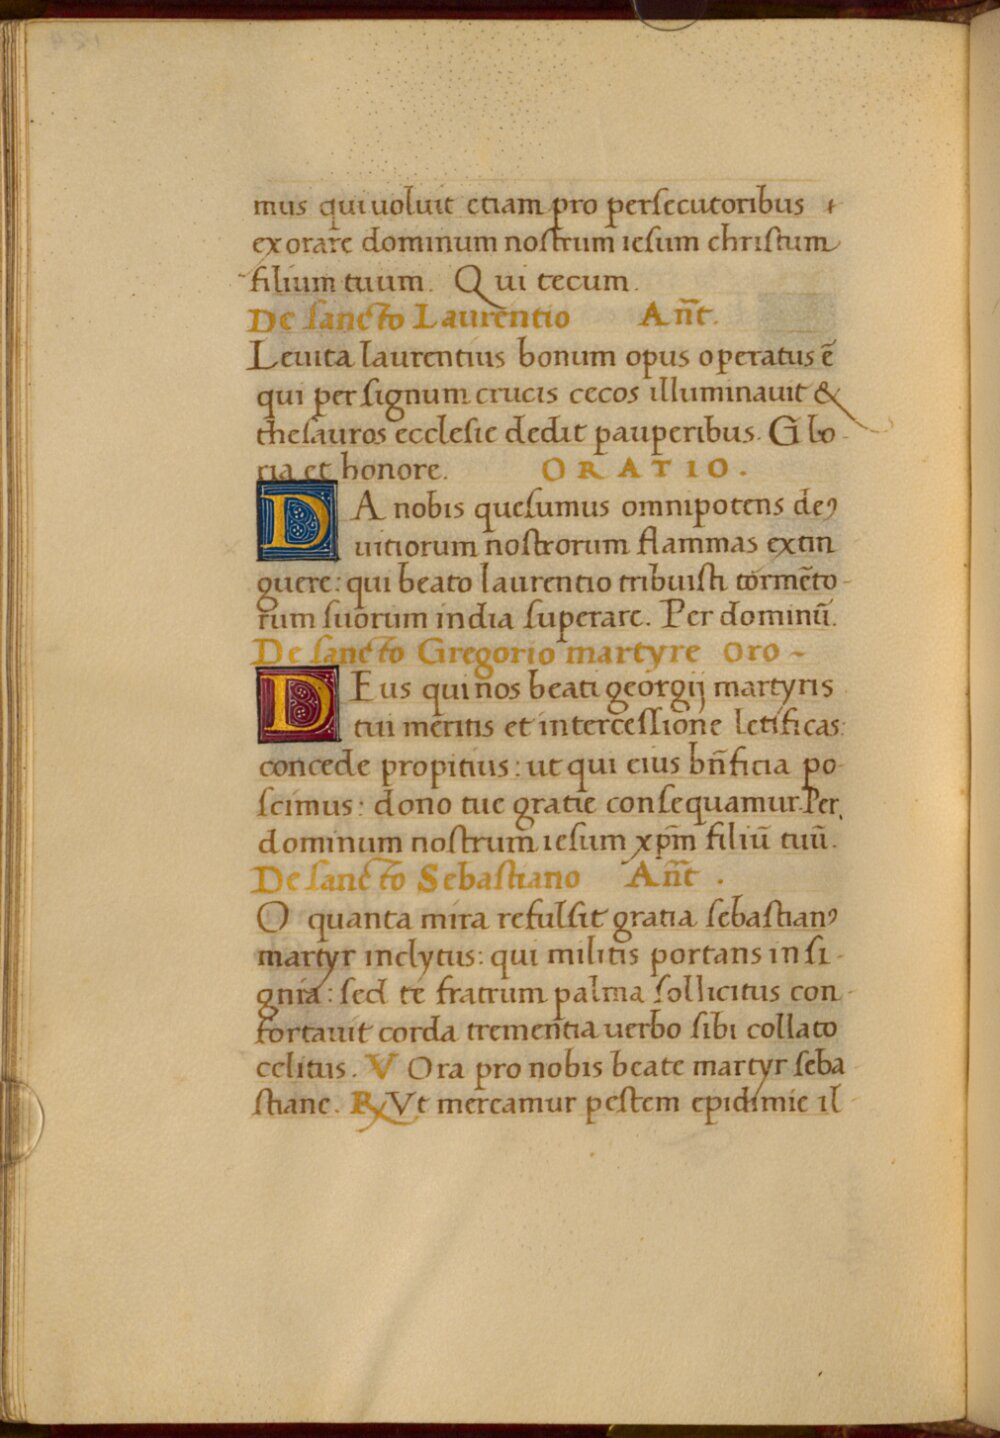 mus qui uoluit etiam pro persecutoribus
exorare dominum nostrum iesum christum
filium tuum. Qui tecum.
De sancto Laurentio Añt.
Leuita laurentius bonum opus operatus ē
qui per signum crucis cecos illuminauit &
thesauros ecclesie dedit pauperibus. Glo-
ria et honore. ORATIO.
DA nobis quesumus omnipotens deꝰ
uitiorum nostrorum flammas extin
guere: qui beato laurentio tribuisti tormēto-
rum suorum india superare. Per dominū.
De sancto Gregorio martyre oro-
DEus qui nos beati georgij martyris
tui meritis et intercessione letificas:
concede propitius: ut qui eius bñficia po-
scimus: dono tue gratie consequamur. Per
dominum nostrum iesum xp̄m filiū tuū.
De sancto Sebastiano Añt.
O quanta mira refulsit gratia sebastianꝰ
martyr inclytus: qui militis portans in si-
gnia: sed te fratrum palma sollicitus con-
fortauit corda trementia uerbo sibi collato
celitus. V Ora pro nobis beate martyr seba
stiane. ℟ Vt mereamur pestem epidimie il